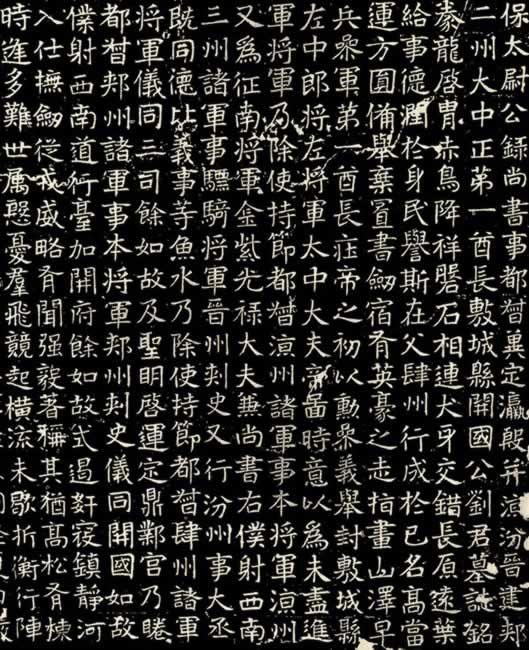 保太尉公錄尚書事都督冀定瀛殷并涼汾晉建郟
二州大中正第一酋長敷城縣開國公劉君墓誌銘
豢龍啓胄赤烏降祥磐石相連犬牙交錯長原遠葉
給事德潤於身民譽斯在父肆州行成於已名高當
運方圓備舉棄置書劒宿有英豪之志指畫山澤早
兵叅軍第一酋長莊帝之初以勳叅義舉封敷城縣
左中郎將左將軍太中大夫帝啚時意以為未盡進
軍將軍乃除使持節都督涼州諸軍事本將軍涼州
又為征南將軍金紫光祿大夫兼尚書右僕射西南
三州諸軍事驃騎將軍晉州刺史又行汾州事大丞
既同德比義事等魚水乃除使持節都督肆州諸軍
將軍儀同三司餘如故及聖明啓運定鼎鄴宮乃睠
都督郟州諸軍事本將軍郟州刺史儀同開國如故
僕射西南道行臺加開府餘如故式遏姧寇鎮靜河
入仕撫劒從戎威略有聞强毅著稱其猶高松有棟
時逢多難世屬慇憂羣飛競起橫流未歇折衝行陣